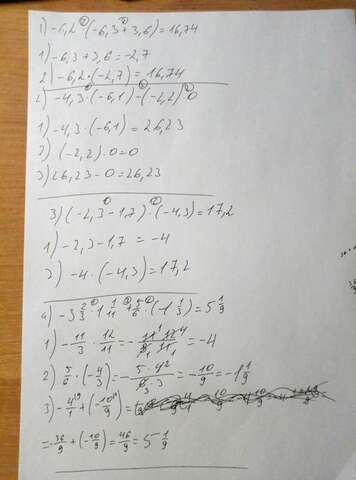 1) -6,2 · (-6,3 + 3,6) = 16,74
1) -6,3 + 3,6 = -2,7
2) -6,2 · (-2,7) = 16,74
2) -4,3 · (-6,1) - (-2,2) · 0
1) -4,3 · (-6,1) = 26,23
2) (-2,2) · 0 = 0
3) 26,23 - 0 = 26,23
3) (-2,3 - 1,7) · (-4,3) = 17,2
1) -2,3 - 1,7 = -4
2) -4 · (-4,3) = 17,2
4) -3 2/3 · 1 1/11 + 5/6 · (-1 1/3) = 5 1/9
1) -11/3 · 12/11 = - = -4
2) 5/6 · (-4/3) = - = -10/9 = -1 1/9
3) -4/1 + (-10/9) =
= -36/9 + (-10/9) = 46/9 = 5 1/9